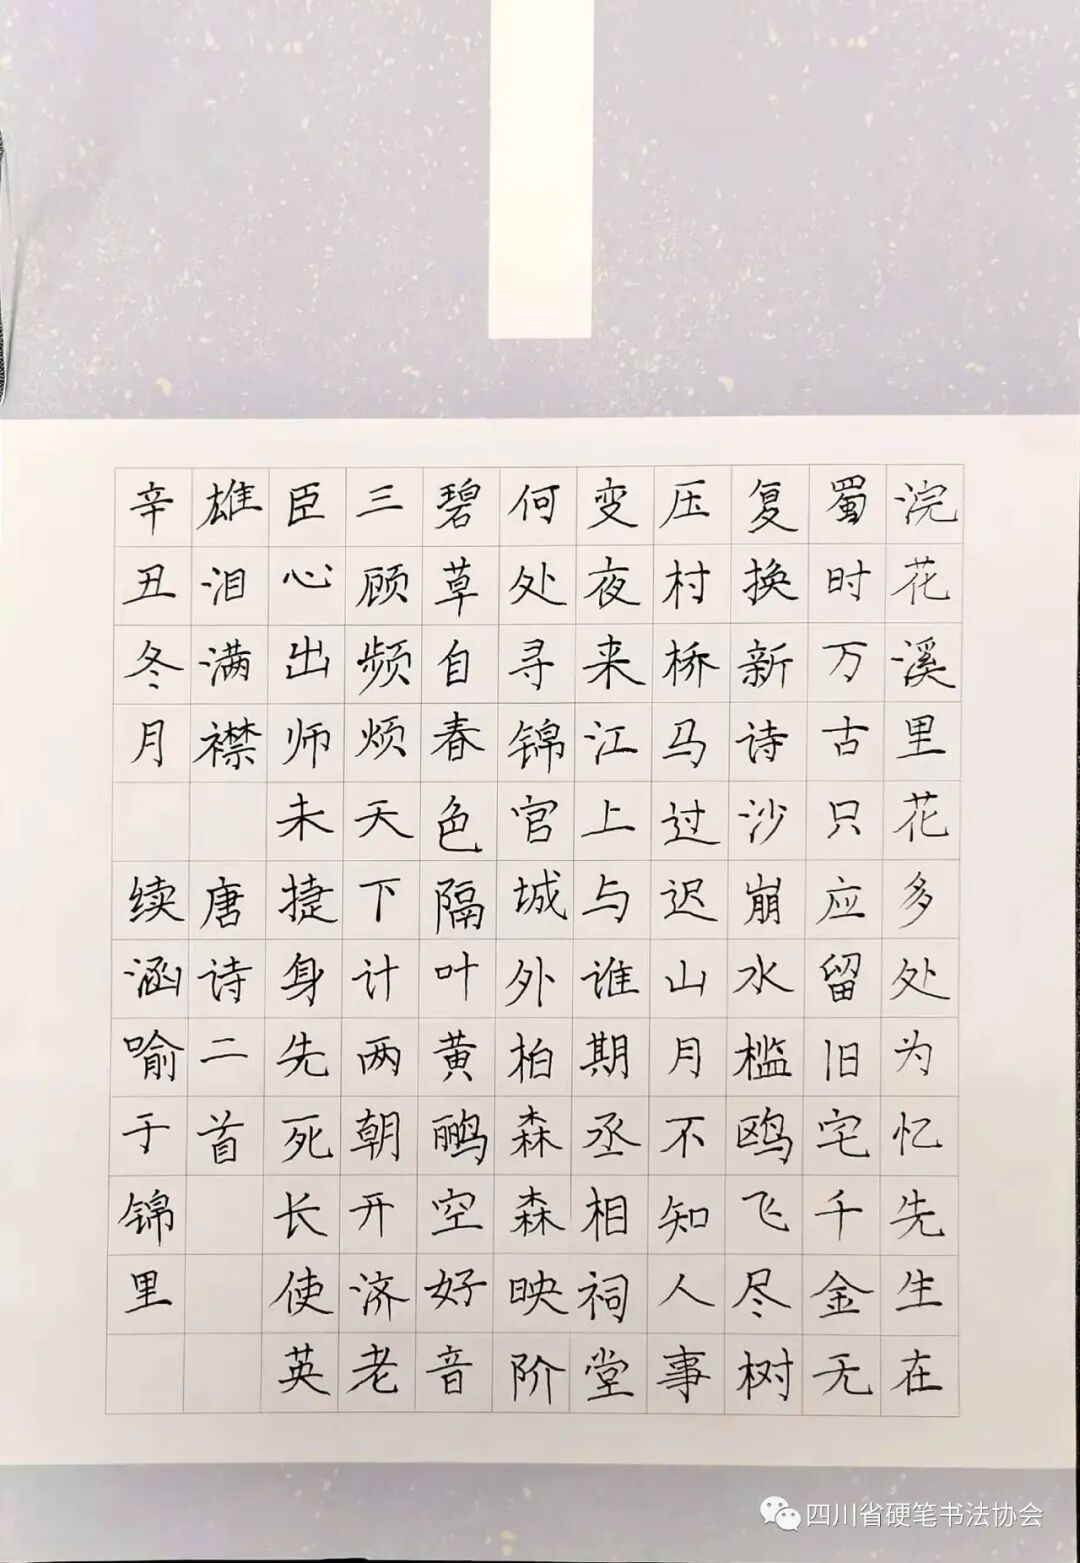 浣花溪里花多处为忆先生在
蜀时万古只应留旧宅千金无
复换新诗沙崩水槛鸥飞尽树
压村桥马过迟山月不知人事
变夜来江上与谁期丞相祠堂
何处寻锦官城外柏森森映阶
碧草自春色隔叶黄鹂空好音
三顾频烦天下计两朝开济老
臣心出师未捷身先死长使英
雄泪满襟 唐诗二首
辛丑冬月 续涵喻于锦里
四川省硬笔书法协会